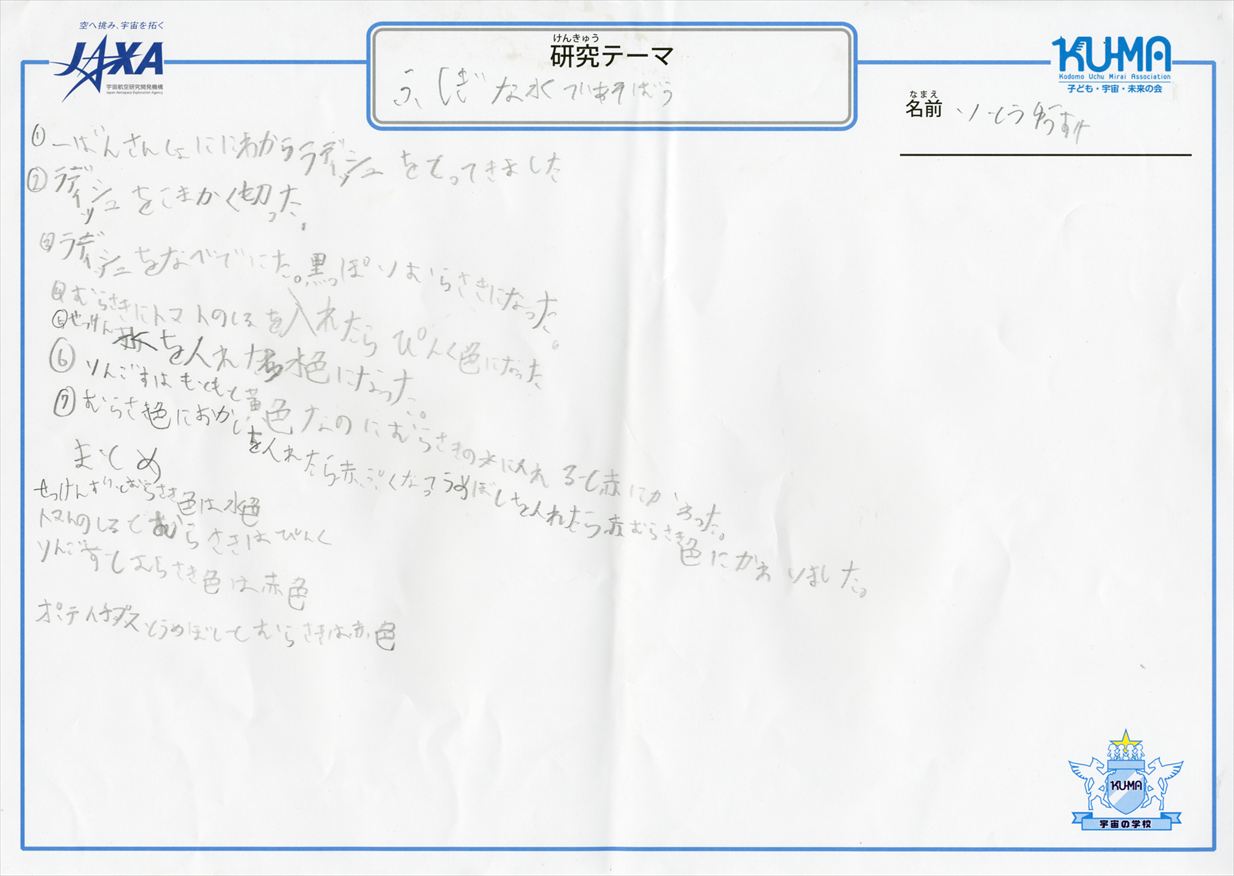 空へ挑み、宇宙を拓く
JAXA
宇宙航空研究開発機構
Japan Aerospace Exploration Agency
けんきゅう
研究テーマ
ふしぎな水であそぼう
KU-MA
Kodomo Uchu Mirai Association
子ども・宇宙・未来の会
なまえ
名前
①一ばんさいしょににわからラディッシュをとってきました
②ラディッシュをこまかく切った。
③ラディッシュをなべでにた。黒っぽいむらさきになった。
④むらさきにトマトのしるを入れたらぴんく色になった
⑤せっけん水を入れたら水色になった。
⑥りんごすはもともと黄色なのにむらさきの水に入れると赤にかわった。
⑦むらさき色におかしを入れたら赤っぽくなってうめぼしを入れたら赤むらさき色にかわりました。
まとめ
せっけんすいとむらさき色は水色
トマトのしるとむらさきはぴんく
りんごすとむらさき色は赤色
ポテトチップスとうめぼしとむらさきは赤色
KUMA
宇宙の学校